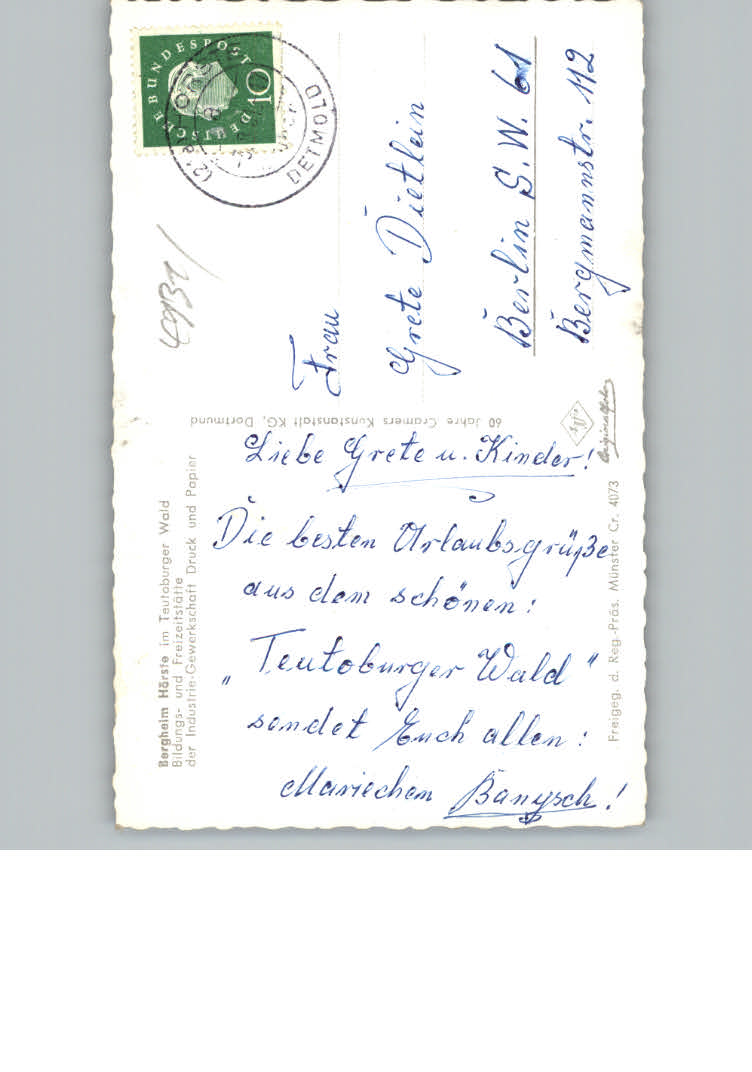 Bergheim Hörste im Teutoburger Wald
Bildungs- und Freizeitstätte
der Industrie-Gewerkschaft Druck und Papier
Liebe Grete u. Kinder!
Die besten Urlaubsgrüße
aus dem schönen:
„Teutoburger Wald"
sendet Euch allen:
Mariechen Banysch!
Freigeg. d. Reg.-Präs. Münster Cr. 4073
60 Jahre Cramers Kunstanstalt KG, Dortmund
DEUTSCHE BUNDESPOST
10
DETMOLD
Frau
Grete Dietlein
Berlin S.W. 61
Bergmannstr. 112